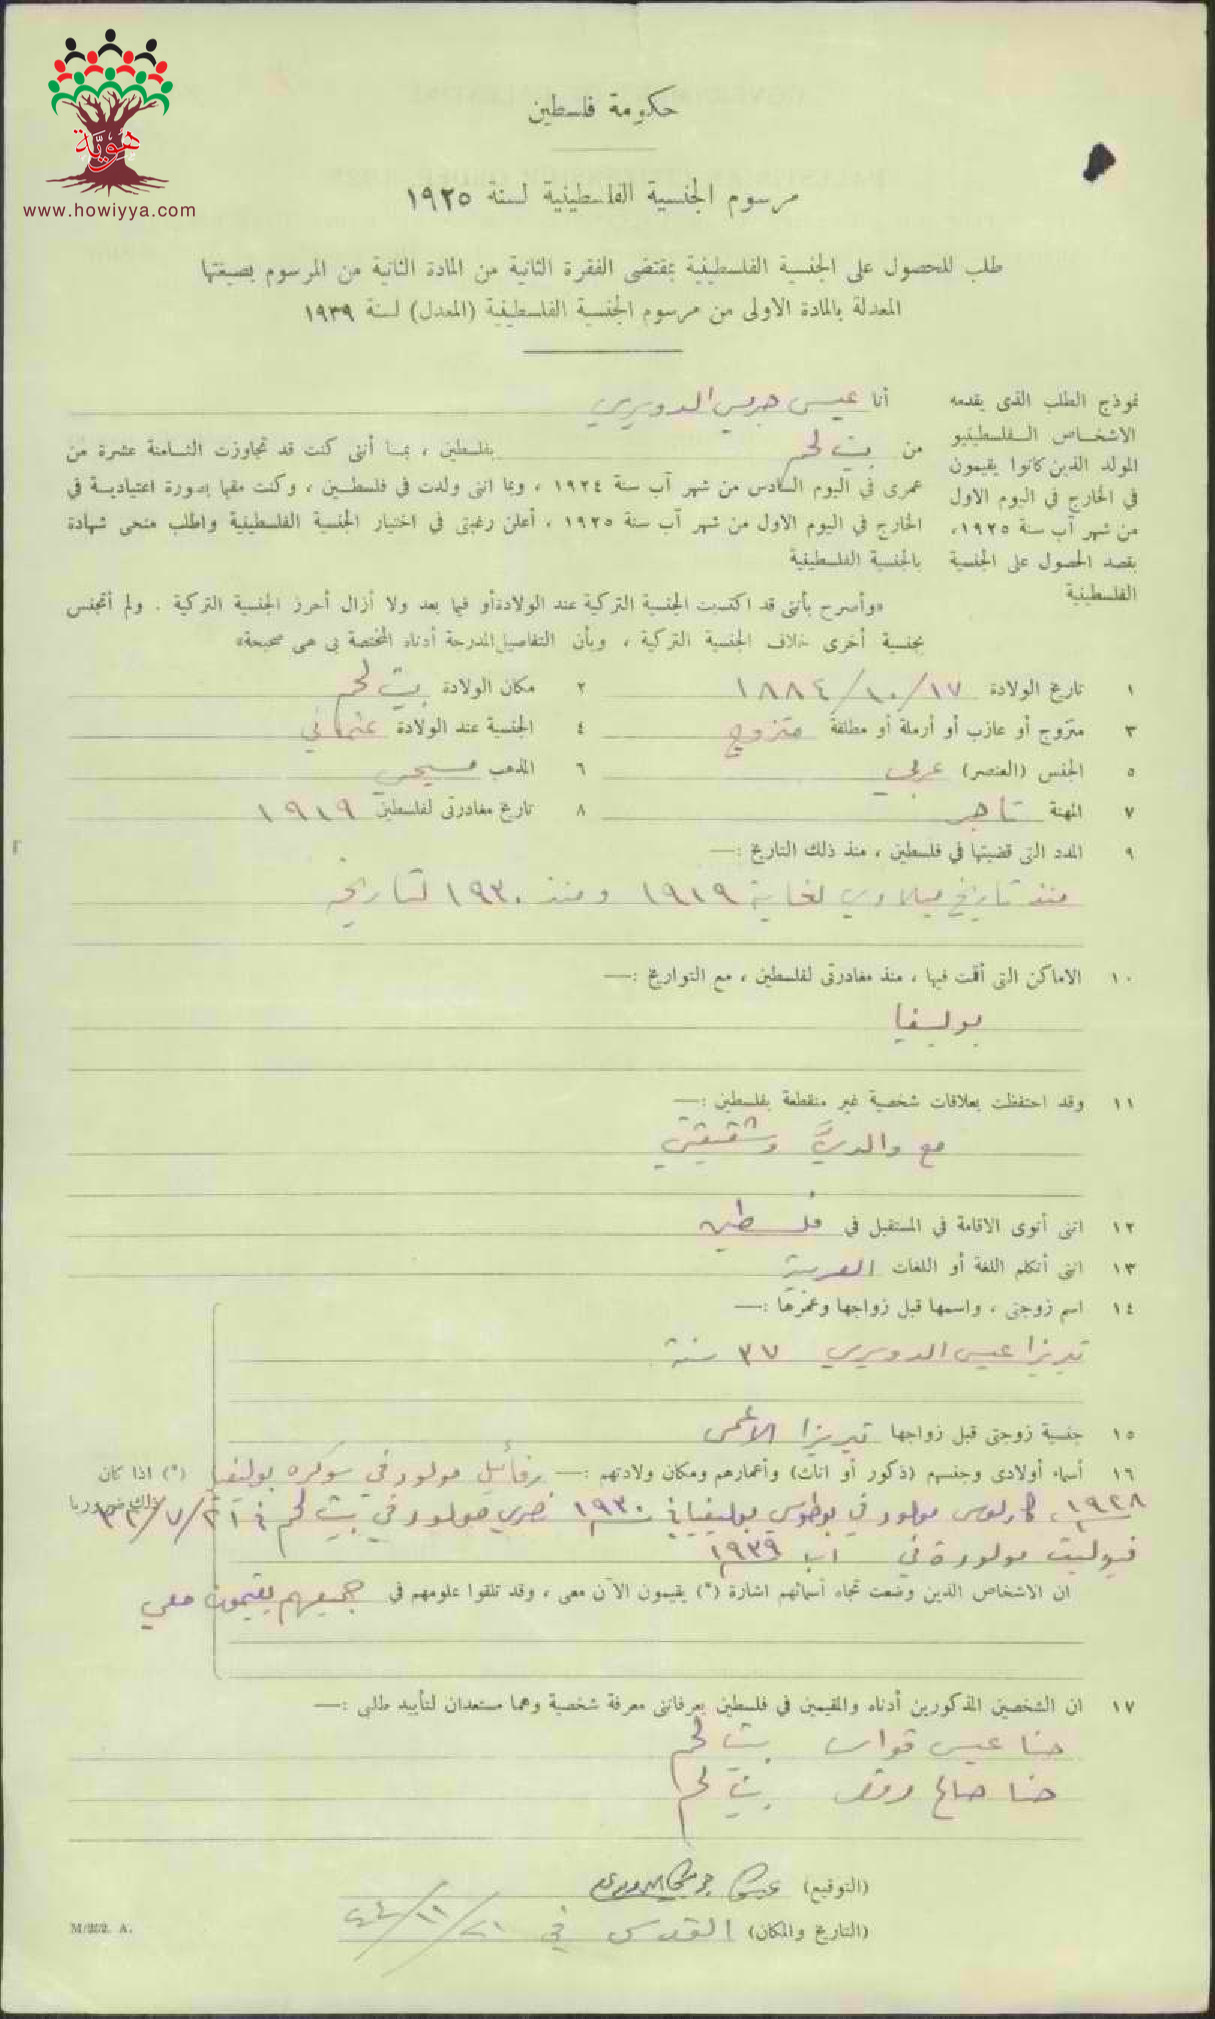 هوية
www.howiyya.com
حكومة فلسطين
مرسوم الجنسية الفلسطينية لسنة ١٩٢٥
طلب للحصول على الجنسية الفلسطينية بمقتضى الفقرة الثانية من المادة الثانية من المرسوم بصيغتها
المعدلة بالمادة الاولى من مرسوم الجنسية الفلسطينية (المعدل) لسنة ١٩٣٩
نموذج الطلب الذى يقدمه
الاشخاص الفلسطينيو
المولد الذين كانوا يقيمون
في الخارج في اليوم الاول
من شهر آب سنة ١٩٢٥،
بقصد الحصول على الجنسية
الفلسطينية
أنا عيسى جريس الدويري
من بيت لحم بفلسطين ، بما أننى كنت قد تجاوزت الثامنة عشرة من
عمرى في اليوم السادس من شهر آب سنة ١٩٢٤ ، وبما اننى ولدت في فلسطين ، وكنت مقيما بصورة اعتيادية في
الخارج في اليوم الاول من شهر آب سنة ١٩٢٥ ، أعلن رغبتى في اختيار الجنسية الفلسطينية واطلب منحى شهادة
بالجنسية الفلسطينية
«وأصرح بأننى قد اكتسبت الجنسية التركية عند الولادة أو فيما بعد ولا أزال أحرز الجنسية التركية . ولم أتجنس
بجنسية أخرى خلاف الجنسية التركية ، وبأن التفاصيل المدرجة أدناه المختصة بى هى صحيحة»
١ تاريخ الولادة ١٧/١٠/١٨٨٤ ٢ مكان الولادة بيت لحم
٣ متزوج أو عازب أو أرملة أو مطلقة متزوج ٤ الجنسية عند الولادة عثماني
٥ الجنس (العنصر) عربي ٦ المذهب مسيحي
٧ المهنة تاجر ٨ تاريخ مغادرتى لفلسطين ١٩١٩
٩ المدد التى قضيتها في فلسطين ، منذ ذلك التاريخ :—
منذ تاريخ ميلادي لغاية ١٩١٩ ومنذ ١٩٣٠ لتاريخه
١٠ الاماكن التى أقمت فيها ، منذ مغادرتى لفلسطين ، مع التواريخ :—
بوليفيا
١١ وقد احتفظت بعلاقات شخصية غير منقطعة بفلسطين :—
مع والديَّ وشقيقتي
١٢ اننى أنوى الاقامة في المستقبل في فلسطين
١٣ اننى أتكلم اللغة أو اللغات العربية
١٤ اسم زوجتى ، واسمها قبل زواجها وعمرها :—
تيريزا عيسى الدويري ٣٧ سنة
١٥ جنسية زوجتى قبل زواجها تيريزا الاعمى
١٦ أسماء أولادى وجنسهم (ذكور أو اناث) وأعمارهم ومكان ولادتهم :— رفائيل مولود في سوكره بوليفيا (*) اذا كان ذلك ضروريا
١٩٢٨ كارلوس مولود في بوطوسي بوليفيا في ١٩٣٠ نصري مولود في بيت لحم في ٢١/٧/٣٢
فيوليت مولودة في آب ١٩٣٩
ان الاشخاص الذين وضعت تجاه أسمائهم اشارة (*) يقيمون الآن معى ، وقد تلقوا علومهم في جميعهم يقيمون معي
١٧ ان الشخصين المذكورين أدناه والمقيمين في فلسطين يعرفاننى معرفة شخصية وهما مستعدان لتأييد طلبى :—
حنا عيسى قواس بيت لحم
حنا صالح بيت لحم
(التوقيع) عيسى جريس الدويري
(التاريخ والمكان) القدس في ٢١/١١/٤٤
M/202. A.